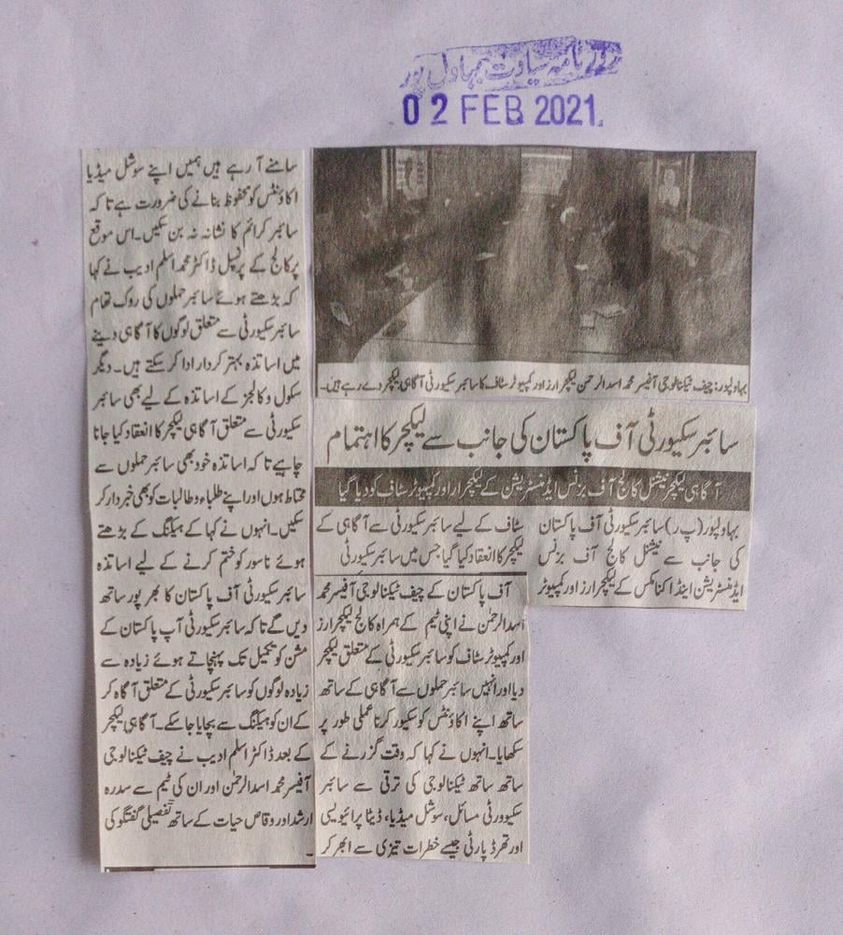 روزنامہ سیادت بہاول پور
02 FEB 2021.
بہاولپور: چیف ٹیکنالوجی آفیسر محمد اسدالرحمن لیکچرارز اور کمپیوٹر سٹاف کا سائبر سکیورٹی آگاہی لیکچر دے رہے ہیں۔
سائبر سکیورٹی آف پاکستان کی جانب سے لیکچر کا اہتمام
آگاہی لیکچر نیشنل کالج آف بزنس ایڈمنسٹریشن کے لیکچرار اور کمپیوٹر سٹاف کو دیا گیا
بہاولپور (پ ر) سائبر سکیورٹی آف پاکستان
کی جانب سے نیشنل کالج آف بزنس
ایڈمنسٹریشن اینڈ اکنامکس کے لیکچرارز اور کمپیوٹر
سٹاف کے لیے سائبر سکیورٹی سے آگاہی کے
لیکچر کا انعقاد کیا گیا جس میں سائبر سکیورٹی
آف پاکستان کے چیف ٹیکنالوجی آفیسر محمد
اسدالرحمٰن نے اپنی ٹیم کے ہمراہ کالج لیکچرارز
اور کمپیوٹر سٹاف کو سائبر سکیورٹی کے متعلق لیکچر
دیا اور انہیں سائبر حملوں سے آگاہی کے ساتھ
ساتھ اپنے اکاؤنٹس کو سکیور کرنا عملی طور پر
سکھایا۔ انہوں نے کہا کہ وقت گزرنے کے
ساتھ ساتھ ٹیکنالوجی کی ترقی سے سائبر
سکیوورٹی مسائل، سوشل میڈیا، ڈیٹا پرائیویسی
اور تھرڈ پارٹی جیسے خطرات تیزی سے ابھر کر
سامنے آ رہے ہیں ہمیں اپنے سوشل میڈیا
اکاؤنٹس کو محفوظ بنانے کی ضرورت ہے تا کہ
سائبر کرائم کا نشانہ نہ بن سکیں۔ اس موقع
پر کالج کے پرنسپل ڈاکٹر محمد اسلم ادیب نے کہا
کہ بڑھتے ہوئے سائبر حملوں کی روک تھام
سائبر سکیورٹی سے متعلق لوگوں کا آگاہی دینے
میں اساتذہ بہتر کردار ادا کر سکتے ہیں۔ دیگر
سکول و کالجز کے اساتذہ کے لیے بھی سائبر
سکیورٹی سے متعلق آگاہی لیکچر کا انعقاد کیا جانا
چاہیے تا کہ اساتذہ خود بھی سائبر حملوں سے
محتاط ہوں اور اپنے طلباء و طالبات کو بھی خبردار کر
سکیں۔ انہوں نے کہا کے ہیکنگ کے بڑھتے
ہوئے ناسور کو ختم کرنے کے لیے اساتذہ
سائبر سکیورٹی آف پاکستان کا بھرپور ساتھ
دیں گے تا کہ سائبر سکیورٹی آپ پاکستان کے
مشن کو تکمیل تک پہنچاتے ہوئے زیادہ سے
زیادہ لوگوں کو سائبر سکیورٹی کے متعلق آگاہ کر
کے ان کو ہیکنگ سے بچایا جا سکے۔ آگاہی لیکچر
کے بعد ڈاکٹر اسلم ادیب نے چیف ٹیکنالوجی
آفیسر محمد اسدالرحمٰن اور ان کی ٹیم سے سدرہ
ارشد اور وقاص حیات کے ساتھ تفصیلی گفتگو کی
۔